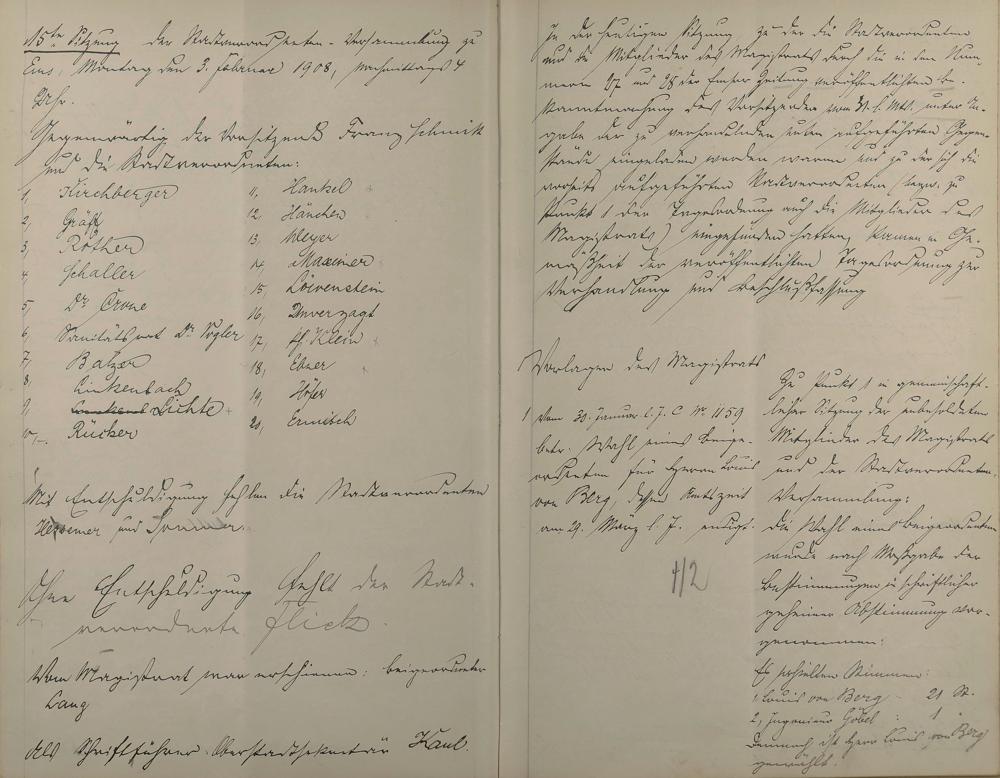 15te Sitzung der Stadtverordneten-Versammlung zu
Ems, Montag den 3. Februar 1908, Nachmittags 4
Uhr.
Gegenwärtig der Vorsitzende Franz Schmitt
und die Stadtverordneten:
1, Kirchberger
2, Gräff
3, Rother
4, Schaller
5, Dr Crone
6, Sanitätsrat Dr Vogler
7, Balzer
8, Linkenbach
9, Lichte
10, Rücker
11, Hankel
12, Hänchen
13, Meyer
14, Maxeiner
15, Löwenstein
16, Unverzagt
17, Klein
18, Ebner
19, Höfer
20, Ermisch
Mit Entschuldigung fehlen die Stadtverordneten
und Sommer.
Ohne Entschuldigung fehlt der Stadt-
verordnete Flick.
Vom Magistrat war erschienen: Beigeordneter
Lang
Als Schriftführer: Oberstadtsekretär Kaul.
In der heutigen Sitzung, zu der die Stadtverordneten
und die Mitglieder des Magistrats durch die in den Num-
mern 27 und 28 der Emser Zeitung veröffentlichten Be-
kanntmachung des Vorsitzenden vom 31. v. Mts. unter An-
gabe der zu verhandelnden neben aufgeführten Gegen-
stände eingeladen worden waren und zu der sich die
vorseits aufgeführten Stadtverordneten (bezw. zu
Punkt 1 der Tagesordnung auch die Mitglieder des
Magistrats) eingefunden hatten, kamen in Ge-
mäßheit der veröffentlichten Tagesordnung zur
Verhandlung und Beschlußfassung
Vorlagen des Magistrats
1 Vom 30. Januar l. J. C No 1159
betr. Wahl eines Beige-
ordneten für Herrn Louis
von Berg, dessen Amtszeit
am 29. März l. J. endigt.
1/2
Zu Punkt 1 in gemeinschaft-
licher Sitzung der unbesoldeten
Mitglieder des Magistrats
und der Stadtverordneten
Versammlung:
Die Wahl eines Beigeordneten
wurde nach Maßgabe der
Bestimmungen in schriftlicher
geheimer Abstimmung vor-
genommen:
Es erhielten Stimmen:
1, Louis von Berg - 21 St.
2, Ingenieur Göbel : 1 "
Demnach ist Herr Louis von Berg
gewählt.